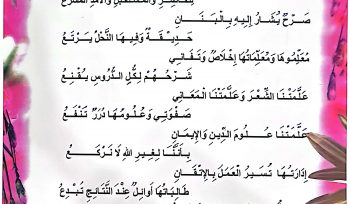 صَرْحٌ يُشَارُ إِلَيهِ بِالْبَنَانِ
حَدِيقَةٌ وَفِيهَا النَّحْلُ يَرْتَعُ
مُعَلِّمُوهَا وَمُعَلِّمَاتُهَا إِخْلَاصٌ وَتَفَانِي
شَرْحُهُمْ لِكُلِّ الدُّرُوسِ يُقْنِعُ
عَلَّمَتْنَا الشِّعْرَ وَعَلَّمَتْنَا الْمَعَانِي
صَفُوتِي وَعُلُومُهَا دُرَرٌ تَنْفَعُ
عَلَّمَتْنَا عُلُومَ الدِّينِ وَالْإِيمَانِ
بِأَنَّنَا لِغَيرِ اللهِ لَا نَرْكَعُ
إِدَارَتُهَا تُسَيرُ الْعَمَلَ بِالْإِتْقَانِ
طَالِبَاتُهَا أَوَائِلُ عِنْدَ النَّتَائِجِ تُبْدِعُ